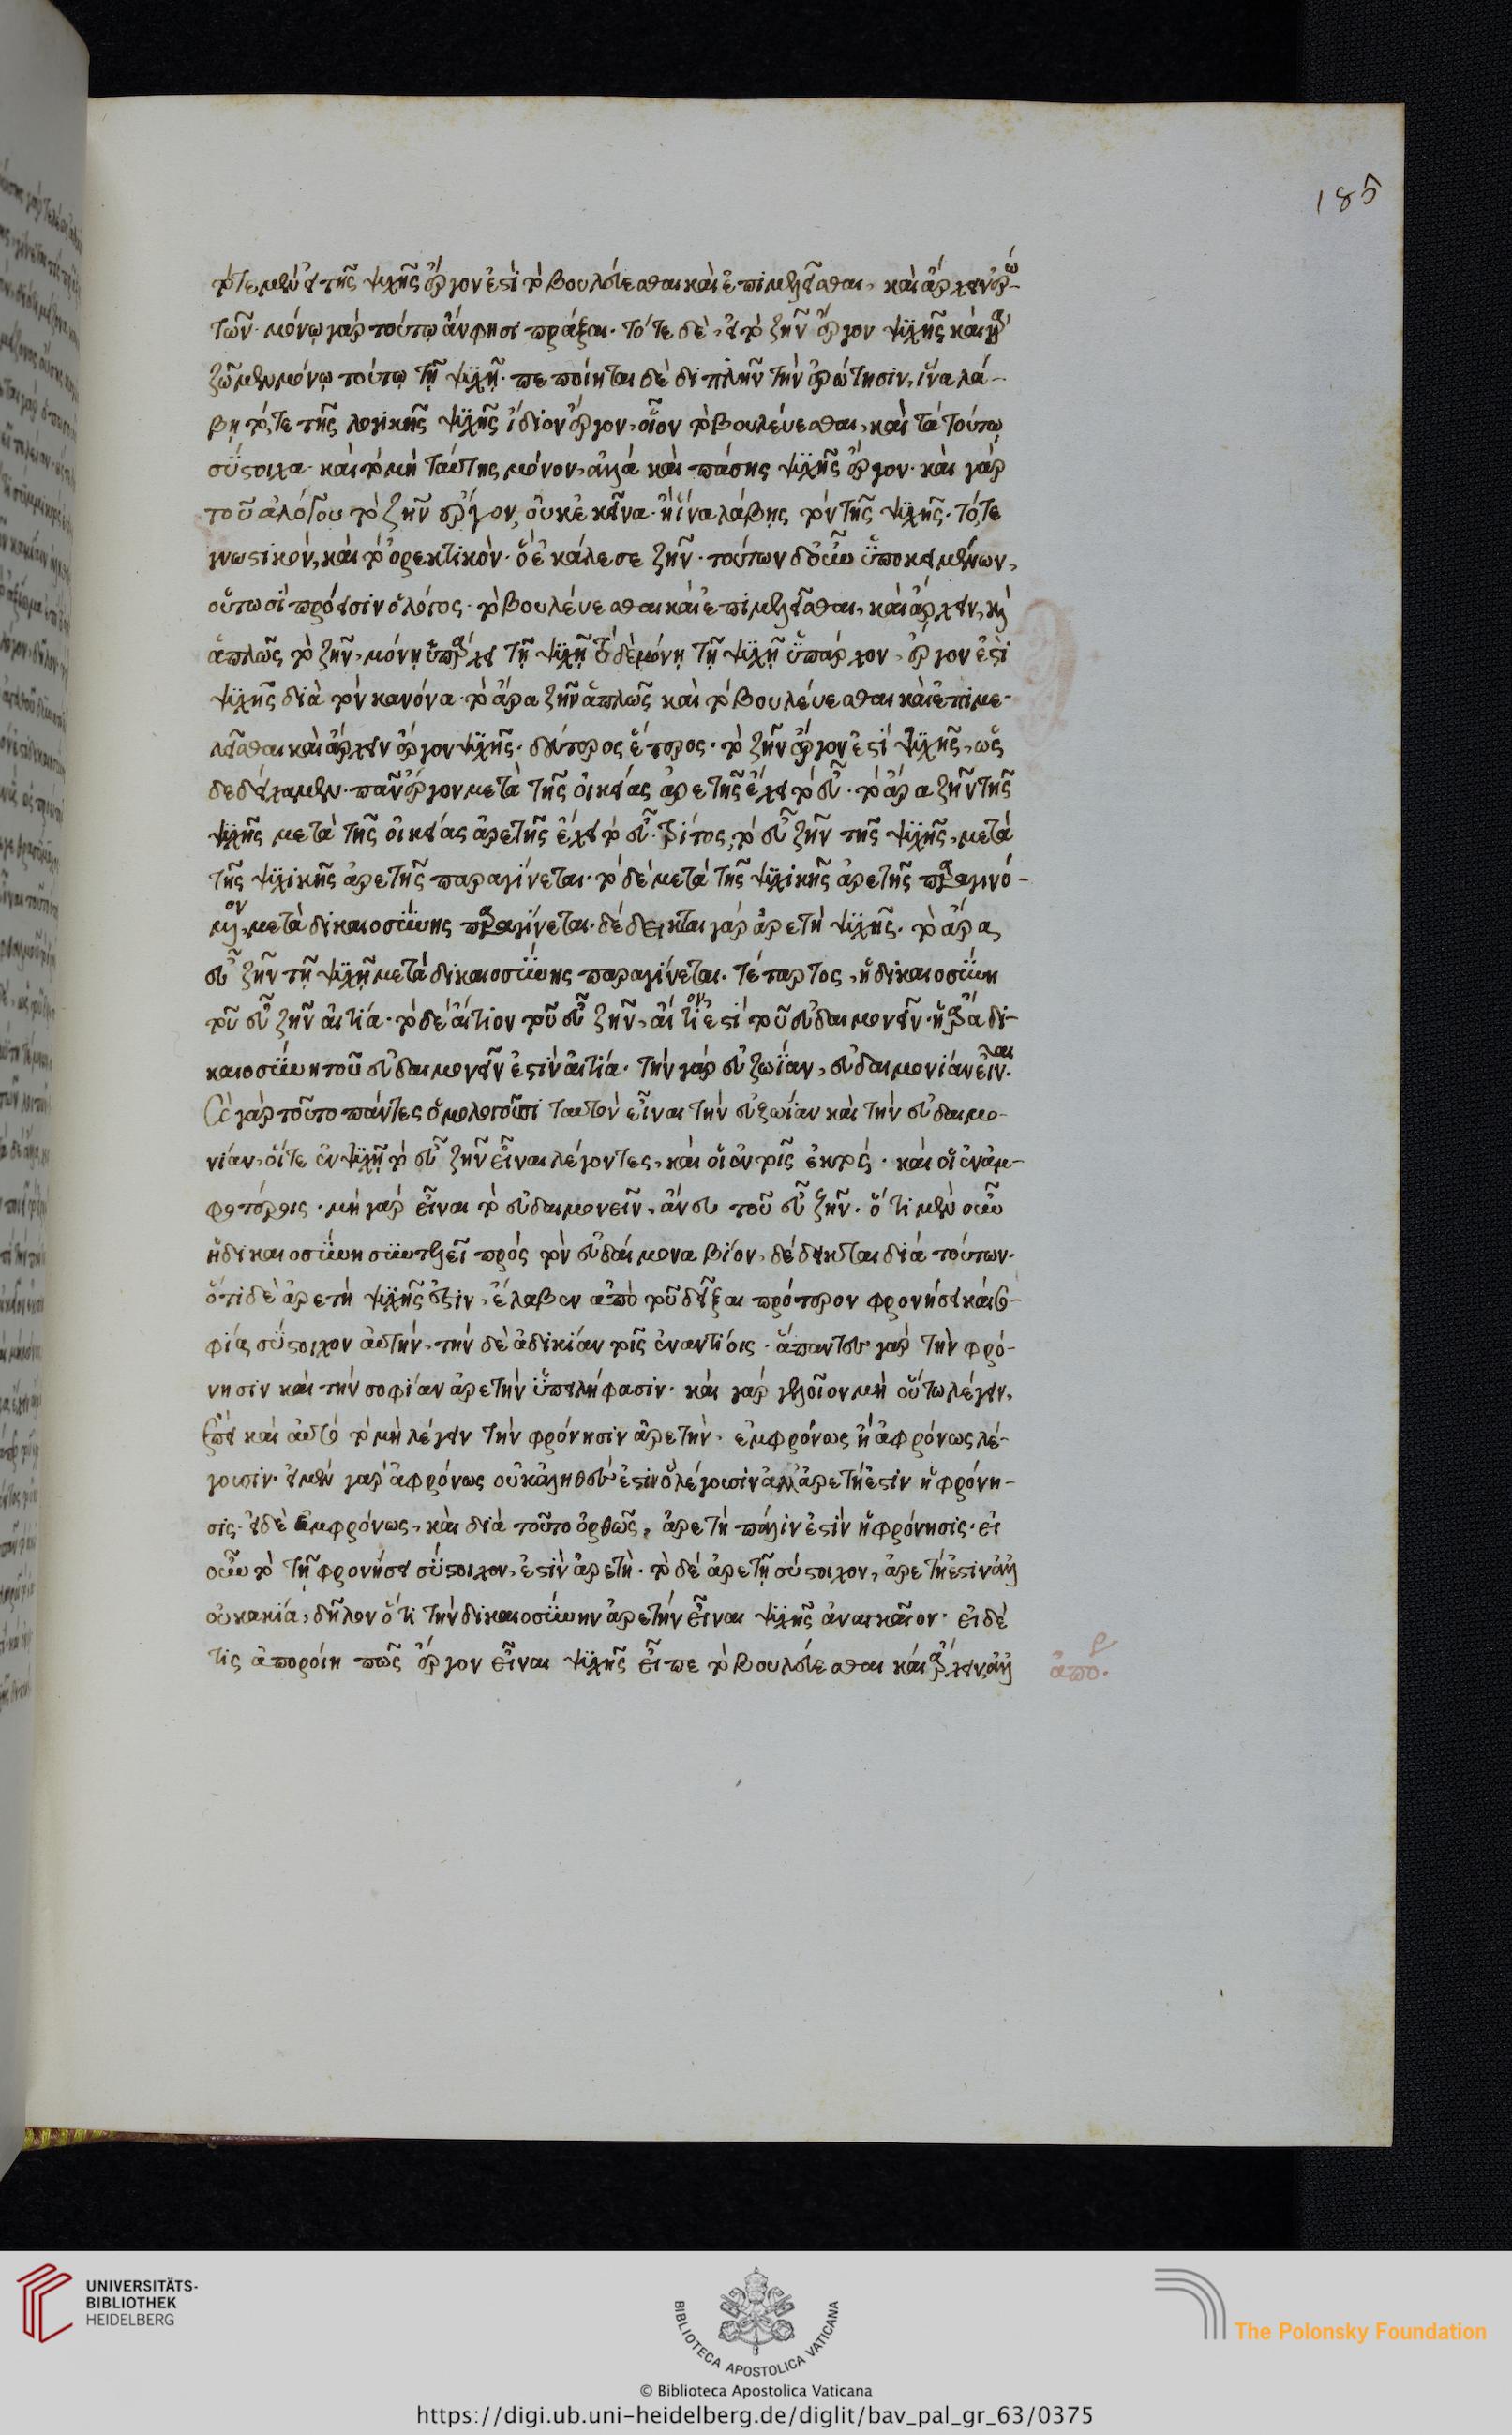 185
τότε μὲν εἰ τῆς ψυχῆς ἔργον ἐστὶ τὸ βουλεύεσθαι καὶ ἐπιμελεῖσθαι, καὶ ἄρχειν ἐρω-
τῶν· μόνῳ γὰρ τούτῳ ἄν φησι πράξαι· τότε δὲ, εἰ τὸ ζῆν ἔργον ψυχῆς καὶ γὰρ
ζῶμεν μόνῳ τούτῳ τῇ ψυχῇ· πεποίηται δὲ διπλῆν τὴν ἐρώτησιν, ἵνα λά-
βῃ τό,τε τῆς λογικῆς ψυχῆς ἴδιον ἔργον, οἷον τὸ βουλεύεσθαι, καὶ τὰ τούτῳ
σύστοιχα· καὶ τὸ μὴ ταύτης μόνον, ἀλλὰ καὶ πάσης ψυχῆς ἔργον· καὶ γὰρ
τοῦ ἀλόγου τὸ ζῆν ἔργον, οὐκ ἐκεῖνα· ἢ ἵνα λάβῃς τὸν τῆς ψυχῆς· τό,τε
γνωστικὸν, καὶ τὸ ὀρεκτικὸν· ὃ ἐκάλεσε ζῆν· τούτων δ' οὖν ὑποκειμένων,
οὕτωσὶ πρόεισιν ὁ λόγος· τὸ βουλεύεσθαι καὶ ἐπιμελεῖσθαι, καὶ ἄρχειν, καὶ
ἁπλῶς τὸ ζῆν, μόνῃ ὑπάρχει τῇ ψυχῇ τὸ δὲ μόνῃ τῇ ψυχῇ ὑπάρχον, ἔργον ἐστὶ
ψυχῆς διὰ τὸν κανόνα· τὸ ἄρα ζῆν ἁπλῶς καὶ τὸ βουλεύεσθαι καὶ ἐπιμε-
λεῖσθαι καὶ ἄρχειν ἔργον ψυχῆς· δεύτερος ἕτερος· τὸ ζῆν ἔργον ἐστὶ ψυχῆς, ὡς
δεδείχαμεν· πᾶν ἔργον μετὰ τῆς οἰκείας ἀρετῆς ἔχει τὸ εὖ· τὸ ἄρα ζῆν τῆς
ψυχῆς μετὰ τῆς οἰκείας ἀρετῆς ἔχει τὸ εὖ· τρίτος, τὸ εὖ ζῆν τῆς ψυχῆς, μετὰ
τῆς ψυχικῆς ἀρετῆς παραγίνεται· τὸ δὲ μετὰ τῆς ψυχικῆς ἀρετῆς παραγινό-
μενον, μετὰ δικαιοσύνης παραγίνεται· δέδεικται γὰρ ἀρετὴ ψυχῆς· τὸ ἄρα
εὖ ζῆν τῇ ψυχῇ μετὰ δικαιοσύνης παραγίνεται· τέταρτος, ἡ δικαιοσύνη
τοῦ εὖ ζῆν αἰτία· τὸ δὲ αἴτιον τοῦ εὖ ζῆν, αἴτιόν ἐστι τοῦ εὐδαιμονεῖν· ἡ ἄρα δι-
καιοσύνη τοῦ εὐδαιμονεῖν ἐστὶν αἰτία· τὴν γὰρ εὐζωΐαν, εὐδαιμονίαν εἶναι.
Ὡς γὰρ τοῦτο πάντες ὁμολογοῦσι ταυτὸν εἶναι τὴν εὐζωΐαν καὶ τὴν εὐδαιμο-
νίαν, οἵτε ἐν ψυχῇ τὸ εὖ ζῆν εἶναι λέγοντες, καὶ οἱ ἐν τοῖς ἐκτός· καὶ οἱ ἐν ἀμ-
φοτέροις· μὴ γὰρ εἶναι τὸ εὐδαιμονεῖν, ἄνευ τοῦ εὖ ζῆν· ὅτι μὲν οὖν
ἡ δικαιοσύνη συντελεῖ πρὸς τὸν εὐδαίμονα βίον, δέδεικται διὰ τούτων·
ὅτι δὲ ἀρετὴ ψυχῆς ἐστιν, ἔλαβεν ἀπὸ τοῦ δεῖξαι πρότερον φρονήσει καὶ σο-
φίᾳ σύστοιχον αὐτὴν, τὴν δὲ ἀδικίαν τοῖς ἐναντίοις· ἅπαντες γὰρ τὴν φρό-
νησιν καὶ τὴν σοφίαν ἀρετὴν ὑπειλήφασιν· καὶ γὰρ γελοῖον μὴ οὕτω λέγειν,
ἐπεὶ καὶ αὐτὸ τὸ μὴ λέγειν τὴν φρόνησιν ἀρετὴν· ἐμφρόνως ἢ ἀφρόνως λέ-
γουσιν· εἰ μὲν γὰρ ἀφρόνως οὐκ ἀληθές ἐστιν ὃ λέγουσιν ἀλλ' ἀρετή ἐστιν ἡ φρόνη-
σις· εἰ δὲ ἐμφρόνως, καὶ διὰ τοῦτο ὀρθῶς, ἀρετὴ πάλιν ἐστὶν ἡ φρόνησις· εἰ
οὖν τὸ τῇ φρονήσει σύστοιχον, ἐστὶν ἀρετὴ· τὸ δὲ ἀρετῇ σύστοιχον, ἀρετή ἐστιν ἀλλ'
οὐ κακία, δῆλον ὅτι τὴν δικαιοσύνην ἀρετὴν εἶναι ψυχῆς ἀναγκαῖον· εἰ δέ
τις ἀποροίη πῶς ἔργον εἶναι ψυχῆς εἶπε τὸ βουλεύεσθαι καὶ ἄρχειν, ἀλλ'
ἀπορ.
UNIVERSITÄTS-
BIBLIOTHEK
HEIDELBERG
BIBLIOTECA APOSTOLICA VATICANA
The Polonsky Foundation
© Biblioteca Apostolica Vaticana
https://digi.ub.uni-heidelberg.de/diglit/bav_pal_gr_63/0375